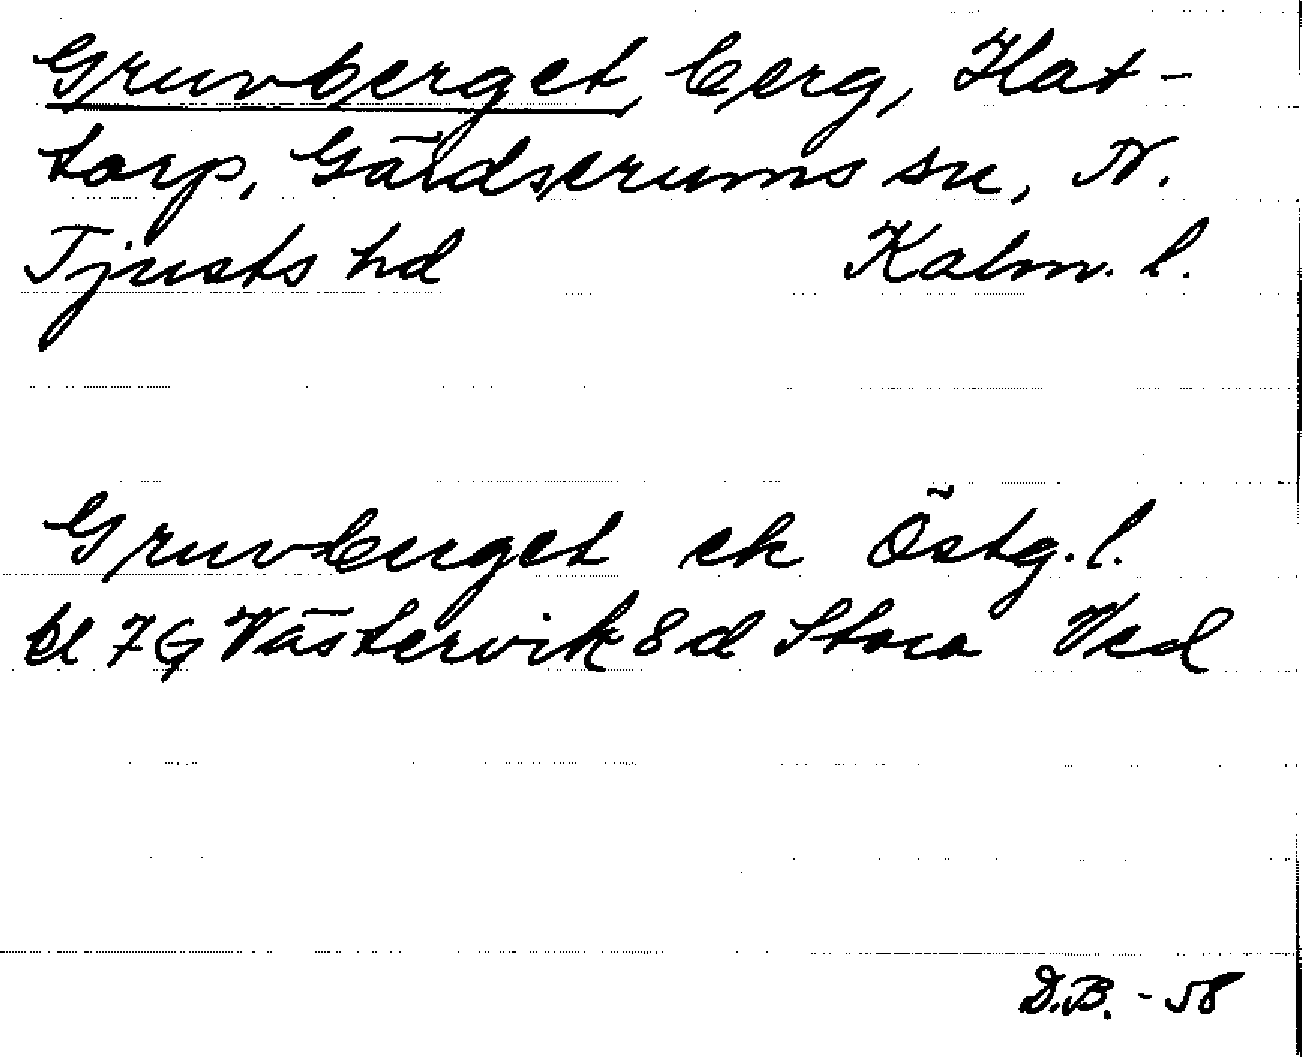 Gruvberget, berg, Hat-
torp, Gärdserums sn, N.
Tjusts hd Kalm. l.
Gruvberget ek Östg. l.
bl 7G Västervik 8d Stora Ved
D.B. - 58